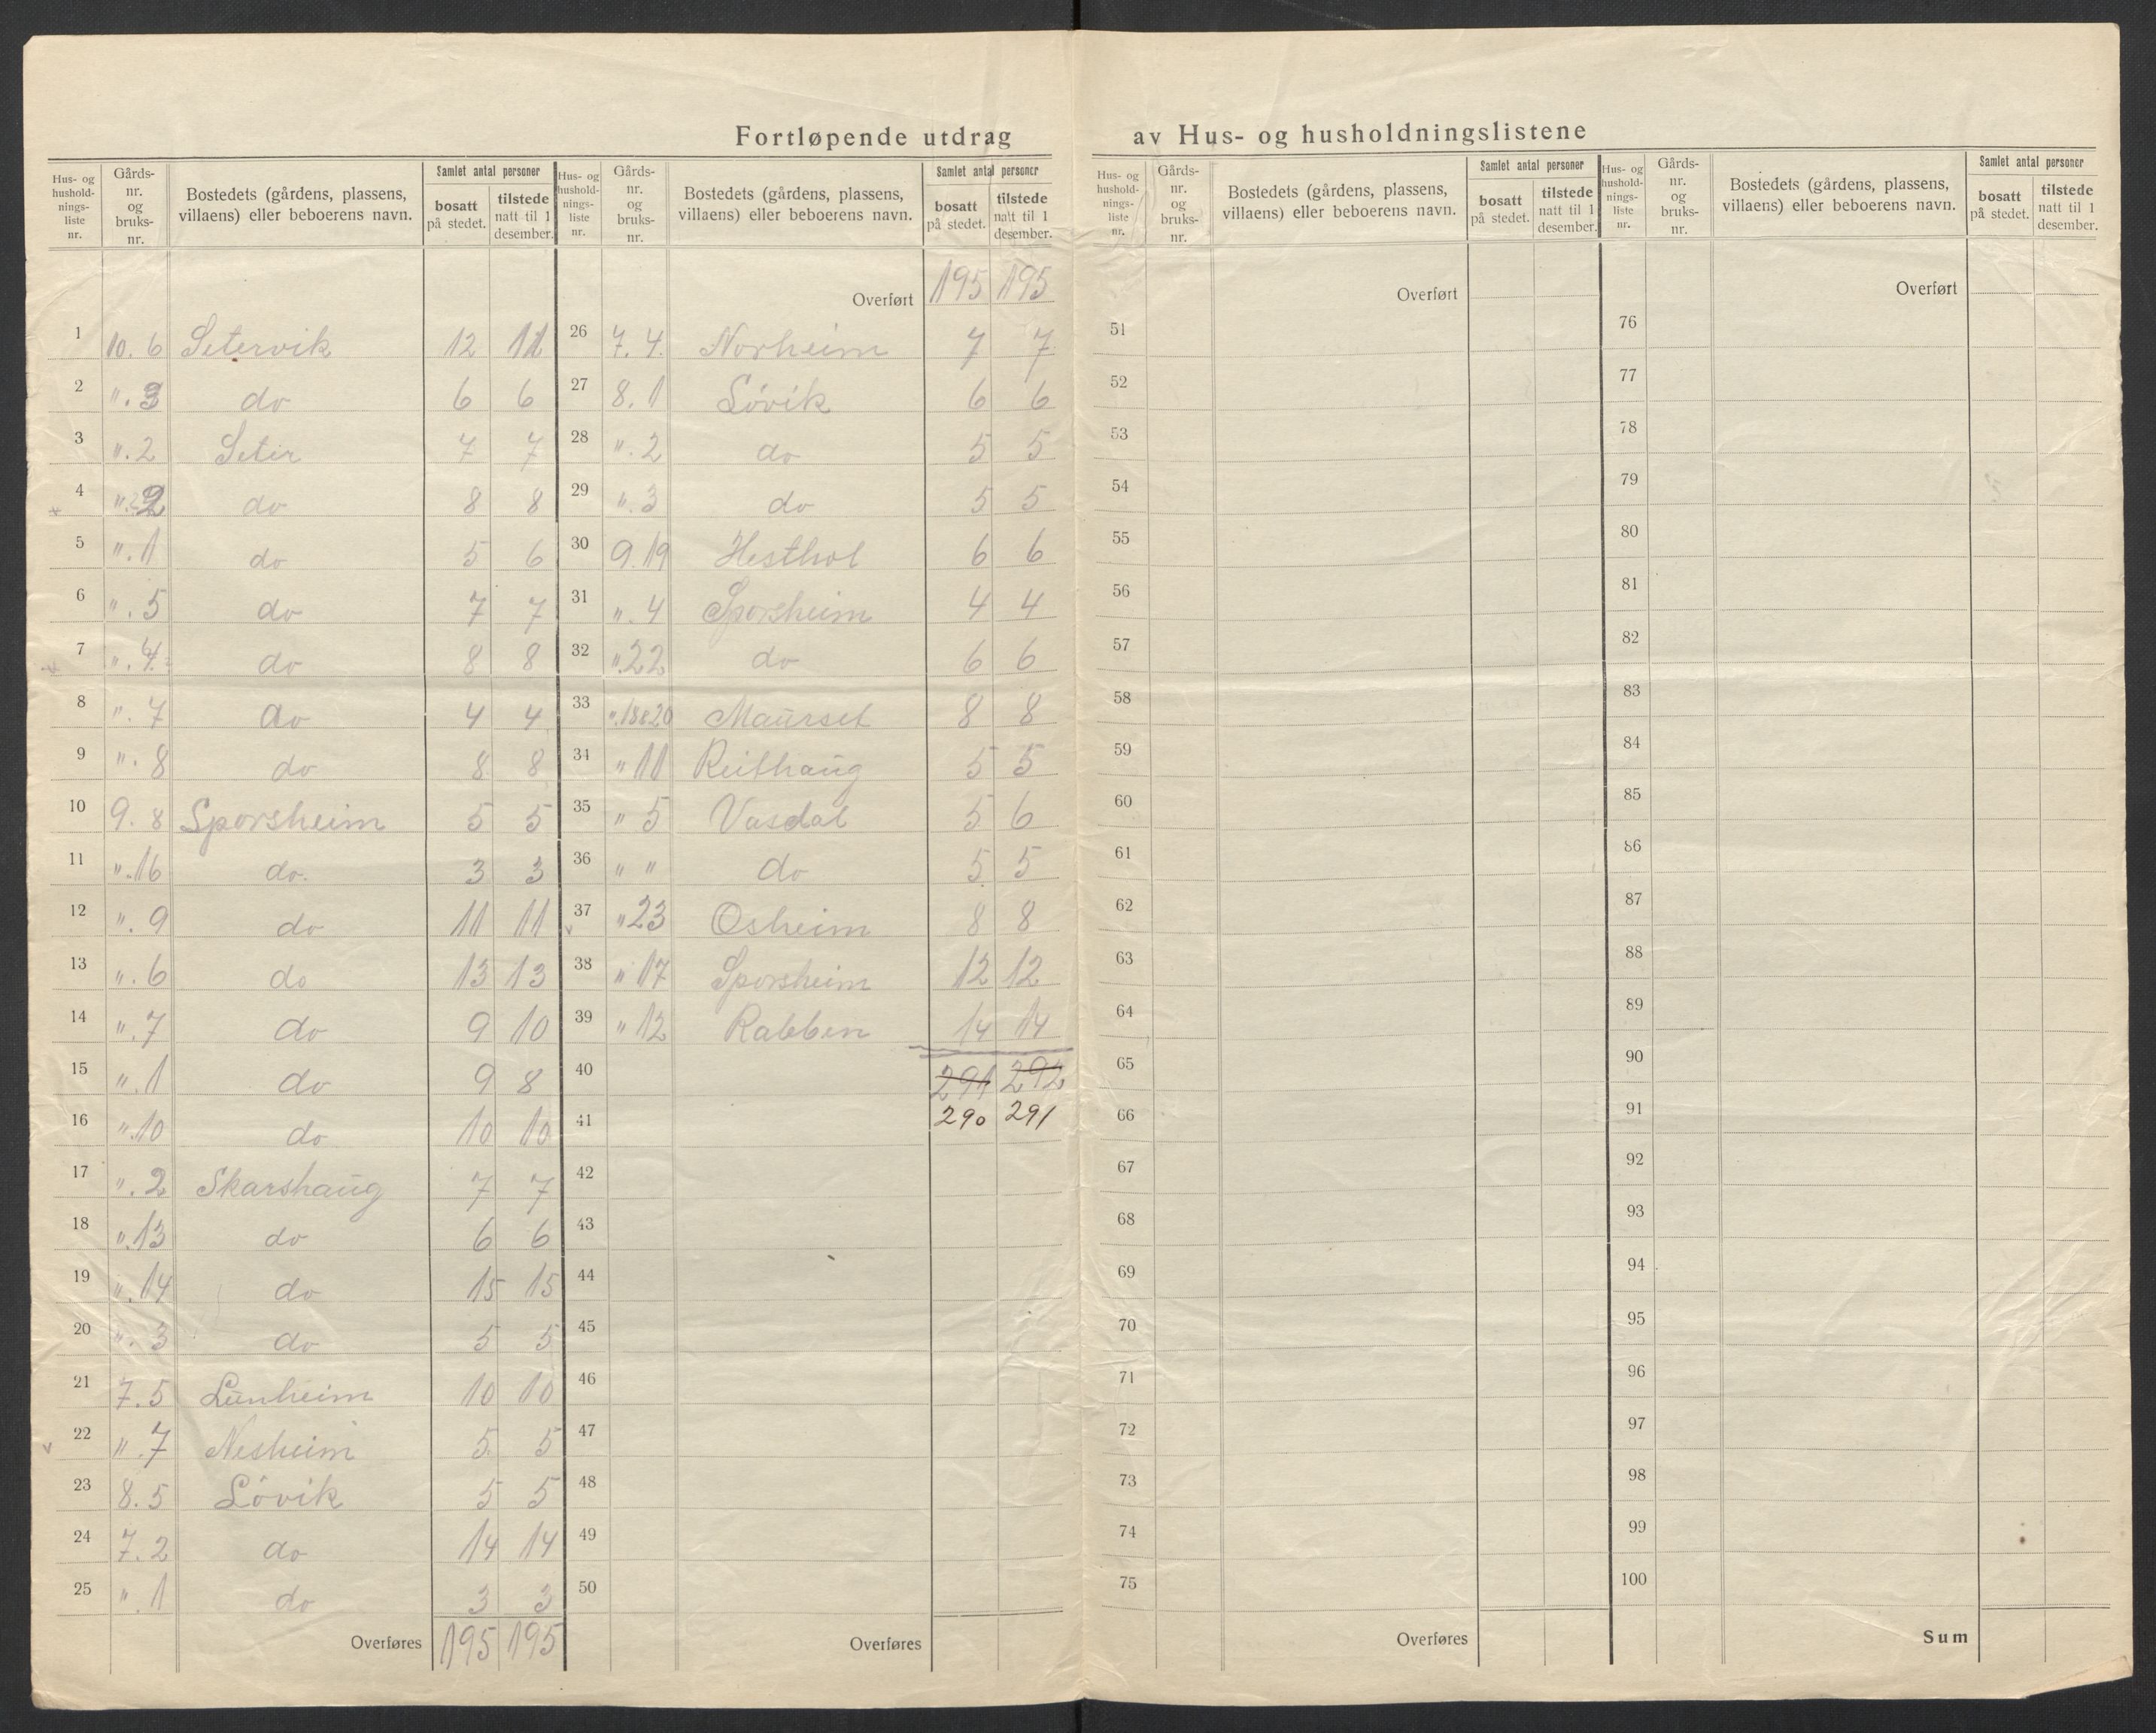 Fortløpende utdrag av Hus- og husholdningslistene
Hus- og husholdnings-liste nr. | Gårds-nr. og bruks-nr. | Bostedets (gårdens, plassens, villaens) eller beboerens navn. | Samlet antal personer | bosatt på stedet. | tilstede natt til 1 desember.
1 10. 6 Setervik 12 11
2 ". 3 do 6 6
3 ". 2 Setir 7 7
4 ". 2 do 8 8
5 ". 1 do 5 6
6 ". 5 do 7 7
7 ". 4 do 8 8
8 ". 7 do 4 4
9 ". 8 do 8 8
10 9. 8 Sporsheim 5 5
11 ". 16 do. 3 3
12 ". 9 do 11 11
13 ". 6 do 13 13
14 ". 7 do 9 10
15 ". 1 do 9 8
16 ". 10 do 10 10
17 ". 2 Skarshaug 7 7
18 ". 13 do 6 6
19 ". 14 do 15 15
20 ". 3 do 5 5
21 7. 5 Lunheim 10 10
22 ". 7 Nesheim 5 5
23 8. 5 Lóvik 5 5
24 7. 2 do 14 14
25 ". 1 do 3 3
Overføres 195 195
Hus- og husholdnings-liste nr. | Gårds-nr. og bruks-nr. | Bostedets (gårdens, plassens, villaens) eller beboerens navn. | Samlet antal personer | bosatt på stedet. | tilstede natt til 1 desember.
Overført 195 195
26 7. 4. Norheim 7 7
27 8. 1 Lóvik 6 6
28 ". 2 do 5 5
29 ". 3 do 5 5
30 9. 19 Hesthol 6 6
31 ". 4 Sporsheim 4 4
32 ". 22 do 6 6
33 ". 18&20 Maurset 8 8
34 " 11 Reithaug 5 5
35 " 5 Vasdal 5 6
36 " " do 5 5
37 " 23 Osheim 8 8
38 " 17 Sporsheim 12 12
39 " 12 Rabben 14 14
40 291 292
41 290 291
42
43
44
45
46
47
48
49
50
Overføres
Hus- og husholdnings-liste nr. | Gårds-nr. og bruks-nr. | Bostedets (gårdens, plassens, villaens) eller beboerens navn. | Samlet antal personer | bosatt på stedet. | tilstede natt til 1 desember.
Overført
51
52
53
54
55
56
57
58
59
60
61
62
63
64
65
66
67
68
69
70
71
72
73
74
75
Overføres
Hus- og husholdnings-liste nr. | Gårds-nr. og bruks-nr. | Bostedets (gårdens, plassens, villaens) eller beboerens navn. | Samlet antal personer | bosatt på stedet. | tilstede natt til 1 desember.
Overført
76
77
78
79
80
81
82
83
84
85
86
87
88
89
90
91
92
93
94
95
96
97
98
99
100
Sum